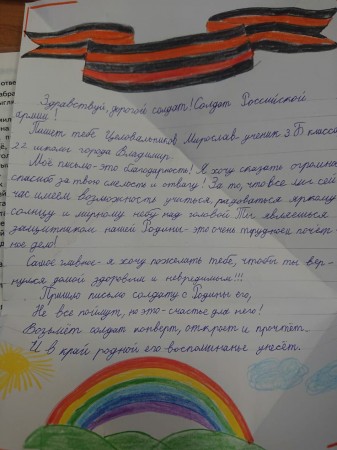 Здравствуй, дорогой солдат! Солдат Российской
армии!
Пишет тебе Целовальников Мирослав ученик 3 Б класса
22 школы города Владимир.
Моё письмо-это благодарность! Я хочу сказать огромное
спасибо за твою смелость и отвагу! За то, что все мы сей
час имеем возможность учиться, радоваться яркому
солнцу и мирному небу над головой. Ты являешься
защитником нашей Родины-это очень трудное и почёт
ное дело!
Самое главное-я хочу пожелать тебе, чтобы ты вер-
нулся домой здоровым и невредимым!!!
Пришло письмо солдату с Родины его,
Не все поймут, но это-счастье для него!
Возьмёт солдат конверт, откроет и прочтёт.
И в край родной его воспоминанье унесёт.